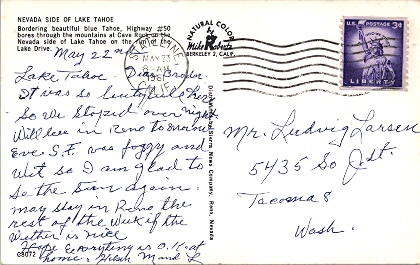 NEVADA SIDE OF LAKE TAHOE
Bordering beautiful blue Tahoe, Highway #50
bores through the mountains at Cave Rock on the
Nevada side of Lake Tahoe on the of the
Lake Drive.
May 22nd
Lake Tahoe Dear
It was so here
So we stoped over night.
Will be in Reno tomorrow
Eve S.F. was foggy and
wet so I am glad to
se the Sun again.
may stay in Reno the
rest of the Week if the
Wether is nice
Hope Everything is O.K. at
home.
C8072
NATURAL COLOR
Mike Roberts
BERKELEY 2, CALIF.
MAY 23
8-AM
1961
Distributed by Sierra News Company, Reno, Nevada
U.S. POSTAGE
3¢
LIBERTY
Mr. Ludvig Larsen
5435 So J st.
Tacoma 8
Wash.